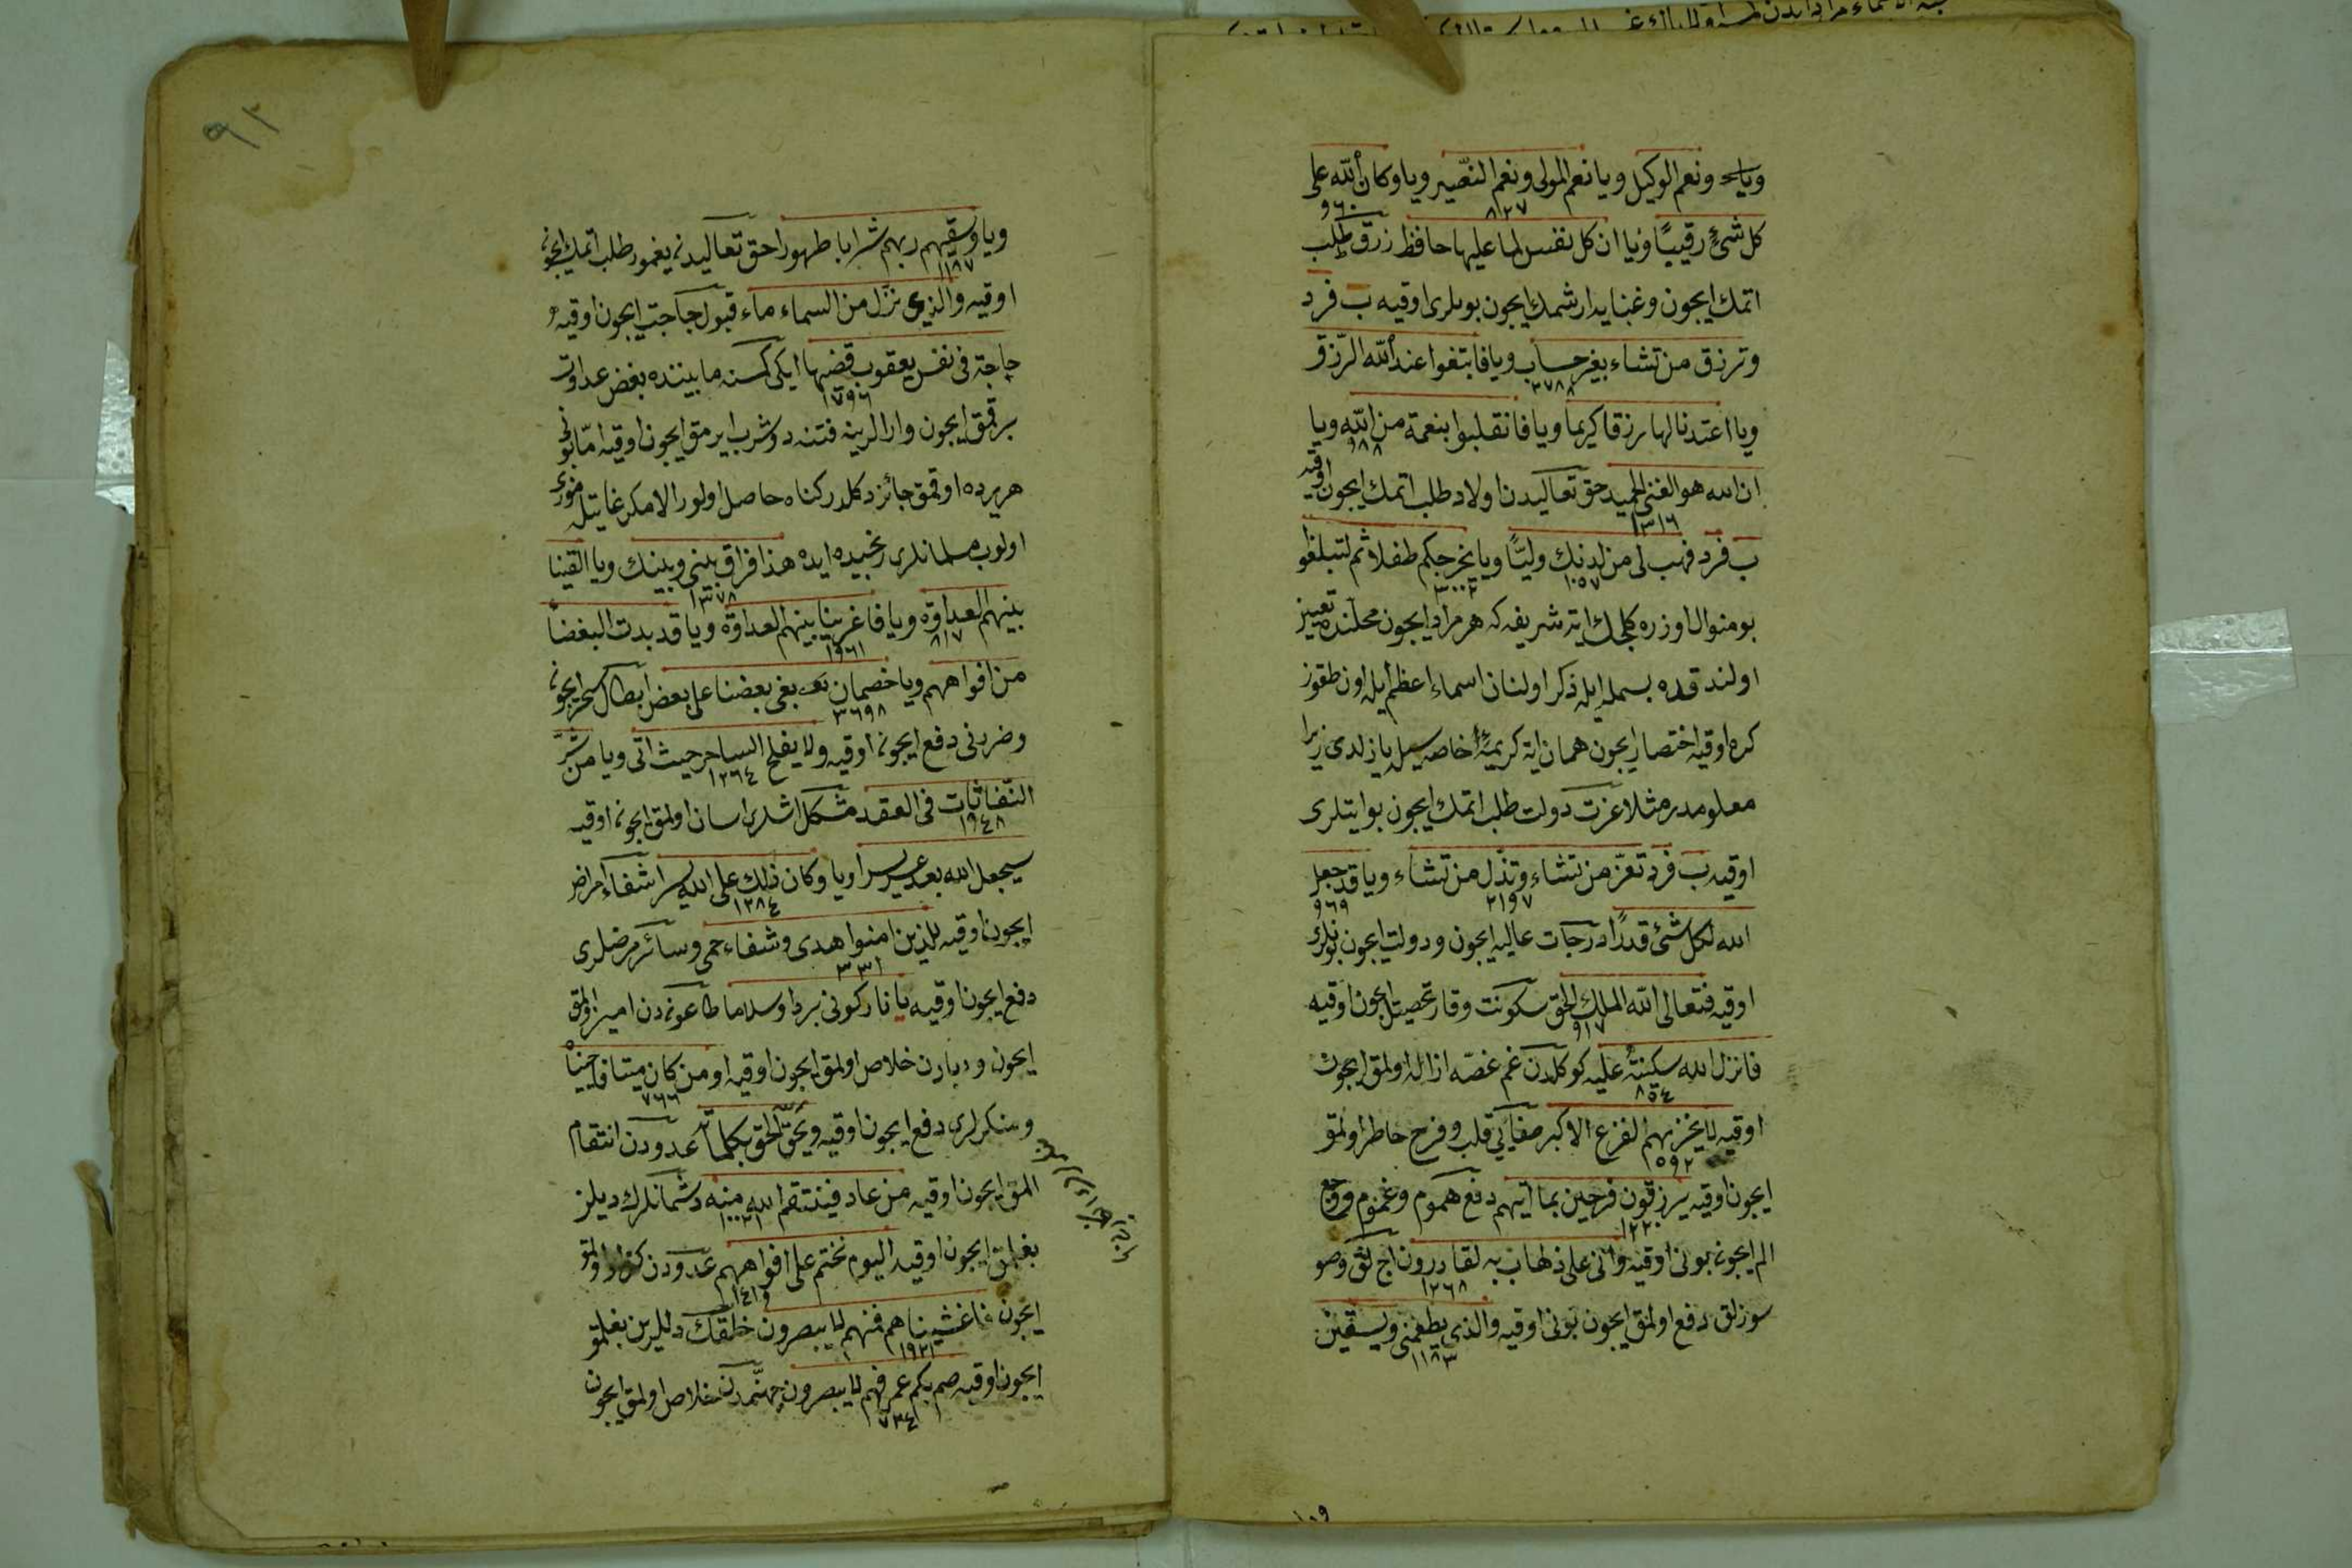 ونعم الوكيل ويا نعم المولى ونعم النصير ويا وكان الله على
٨٢٧ ٩٦٠
كل شئ رقيبًا ويا ان كل نفس لما عليها حافظ رزق طلب
اتمك ايچون وغنايه ارشمك ايچون بونلرى اوقيه ب فرد
وترزق من تشاء بغير حساب ويا فابتغوا عند الله الرّزق
٣٧٨٨
ويا اعتدنا لها رزقا كريما ويا فانقلبوا بنعمة من الله ويا
٩٨٨
ان الله هو الغنى الحميد حق تعاليدن اولاد طلب اتمك ايچون اوقيه
١٣١٦
ب فرد فهب لى من لدنك وليًّا ويا يخرجكم طفلا ثم لتبلغوا
١٠٥٧ ٣٠٠٢
بو منوال اوزره كلجك ايه شريفه كه هر مراد ايچون محلنده تعيين
اولندقده بسمله ايله ذكر اولنان اسماء اعظم ايله اون طقوز
كره اوقيه اختصار ايچون همان ايه كريمه خاصه سيله يازلدى زيرا
معلومدر مثلا عزت دولت طلب اتمك ايچون بو ايتلرى
اوقيه ب فرد تعزّ من تشاء وتذّل من تشاء ويا قد جعل
٢١٩٧ ٩٦٩
الله لكل شئ قدرًا درجات عاليه ايچون ودولت ايچون بونلرى
اوقيه فتعالى الله الملك الحق سكونت وقار تحصيل ايچون اوقيه
٩١٧
فانزل الله سكينته عليه كوكلدن غم غصه ازاله اولمق ايچون
٨٥٤
اوقيه لا يحزنهم الفزع الاكبر صفاى قلب وفرح خاطر اولمق
١٥٩٢
ايچون اوقيه يرزقون فرحين بما اتيهم دفع هموم وغموم ووجع
١٢٢٠
الم ايچون بونى اوقيه وانى على ذهاب به لقادرون اچلق وصو
١٢٦٨
سوزلق دفع اولمق ايچون بونى اوقيه والذى يطعمنى ويسقين
١١٨٣
٩٢
ويا وسقيهم ربهم شرابا طهورا حق تعاليدن يغمور طلب اتمك ايچون
١١٨٧
اوقيه والذى نزّل من السماء ماء قبول حاجت ايچون اوقيه
حاجة فى نفس يعقوب قضيها ايكى كمسنه مابيننده بغض عداوت
١٧٩٦
برقمق ايچون وارالرينه فتنه دوشرب ايرمق ايچون اوقيه امّا بونى
هر يرده اوقمق جائز دكلدر كناه حاصل اولور الا مكر غايتله
اولوب مسلمانلرى رنجيده ايده هذا فراق بينى وبينك ويا القينا
١٣٧٨
بينهم العداوة ويا فاغرينا بينهم العداوة ويا قد بدت البغضا
٨١٧ ١٩٦١
من افواههم ويا خصمان بغى بعضنا على بعض ابطال سحر ايچون
٣٦٩٨
وضرينى دفع ايچون اوقيه ولا يفلح الساحر حيث اتى ويا من شرّ
١٢٦٤
النّفاثات فى العقد مشكل اشلرى اسان اولمق ايچون اوقيه
١٩٤٨
سيجعل الله بعد عسر يسرا ويا وكان ذلك على الله يسيرا شفاء امراض
١٢٨٤
ايچون اوقيه للذين امنوا هدى وشفاء حمى وسائر مرضلرى
٣٣١
دفع ايچون اوقيه يا نار كونى بردا وسلاما طاعوندن امين اولمق
ايچون ووبادن خلاص اولمق ايچون اوقيه او من كان ميتا فاحييناه
٧٦٦
ومنكرلرى دفع ايچون اوقيه ويحقّ الحق بكلماته عدودن انتقام
المق ايچون اوقيه من عاد فينتقم الله منه دشمانلرك ديلن
١٠٠٢١
بغلمق ايچون اوقيه اليوم نختم على افواههم عدودن
١٤١٩
ايچون فاغشيناهم فهم لا يبصرون خلقك دللرين بغلمق
١٩٢١
ايچون اوقيه صم بكم عمى فهم لا يبصرون جهنّمدن خلاص اولمق ايچون
٧٣٤